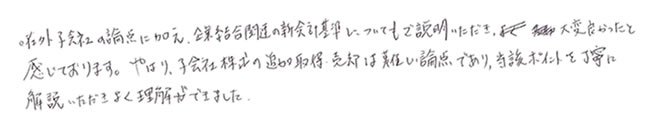 。在外子会社の論点に加え、企業結合関連の新会計基準についてもご説明いただき、大変良かったと
感じております。やはり、子会社株式の追加取得・売却は難しい論点であり、当該ポイントを丁寧に
解説いただきよく理解ができました。